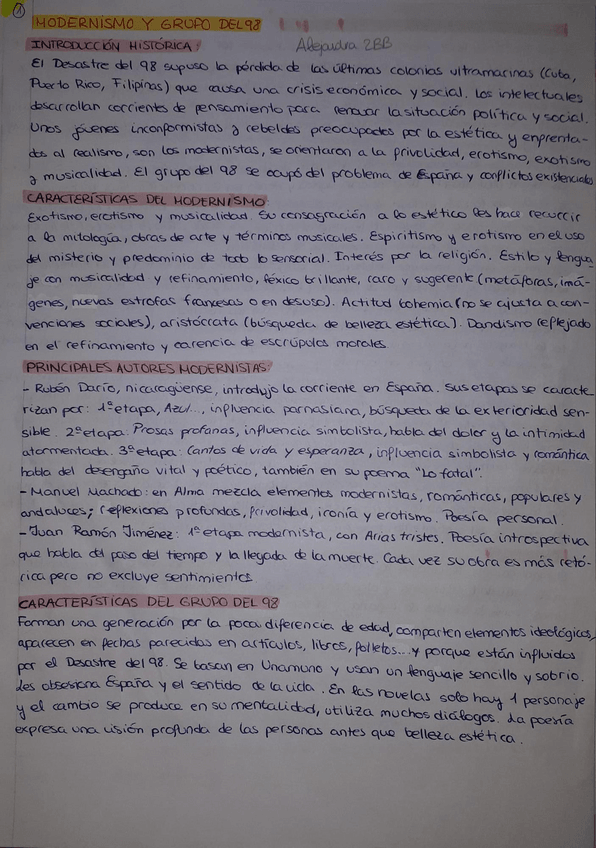 1
MODERNISMO Y GRUPO DEL 98
INTRODUCCIÓN HISTÓRICA: Alejandra 2BB
El Desastre del 98 supuso la pérdida de las últimas colonias ultramarinas (Cuba,
Puerto Rico, Filipinas) que causa una crisis económica y social. Los intelectuales
desarrollan corrientes de pensamiento para renovar la situación política y social.
Unos jóvenes inconformistas y rebeldes preocupados por la estética y enprenta-
dos al realismo, son los modernistas, se orientaron a la frivolidad, erotismo, exotismo
y musicalidad. El grupo del 98 se ocupó del problema de España y conflictos existenciales
CARACTERÍSTICAS DEL MODERNISMO
Exotismo, erotismo y musicalidad. Su consagración a lo estético les hace recurrir
a la mitología, obras de arte y términos musicales. Espiritismo y erotismo en el uso
del misterio y predominio de todo lo sensorial. Interés por la religión. Estilo y lengua
je con musicalidad y refinamiento, léxico brillante, raro y sugerente (metáforas, imá-
genes, nuevas estrofas francesas o en desuso). Actitud bohemia (no se ajusta a con-
venciones sociales), aristócrata (búsqueda de belleza estética). Dandismo reflejado
en el refinamiento y carencia de escrúpulos morales.
PRINCIPALES AUTORES MODERNISTAS:
- Rubén Darío, nicaragüense, introdujo la corriente en España. Sus etapas se caracte
rizan por: 1ª etapa, Azul..., influencia parnasiana, búsqueda de la exterioridad sen-
sible. 2ª etapa: Prosas profanas, influencia simbolista, habla del dolor y la intimidad
atormentada. 3ª etapa: Cantos de vida y esperanza, influencia simbolista y romántica
habla del desengaño vital y poético, también en su poema "Lo fatal".
- Manuel Machado: en Alma mezcla elementos modernistas, románticas, populares y
andaluces; reflexiones profundas, frivolidad, ironía y erotismo. Poesía personal.
- Juan Ramón Jiménez: 1ª etapa modernista, con Arias tristes. Poesía introspectiva
que habla del paso del tiempo y la llegada de la muerte. Cada vez su obra es más retó-
rica pero no excluye sentimientos
CARACTERÍSTICAS DEL GRUPO DEL 98
Forman una generación por la poca diferencia de edad, comparten elementos ideológicos,
aparecen en fechas parecidas en artículos, libros, folletos... y porque están influidos
por el Desastre del 98. Se basan en Unamuno y usan un lenguaje sencillo y sobrio.
Les obsesiona España y el sentido de la vida. En las novelas solo hay 1 personaje
y el cambio se produce en su mentalidad, utiliza muchos diálogos. La poesía
expresa una visión profunda de las personas antes que belleza estética.